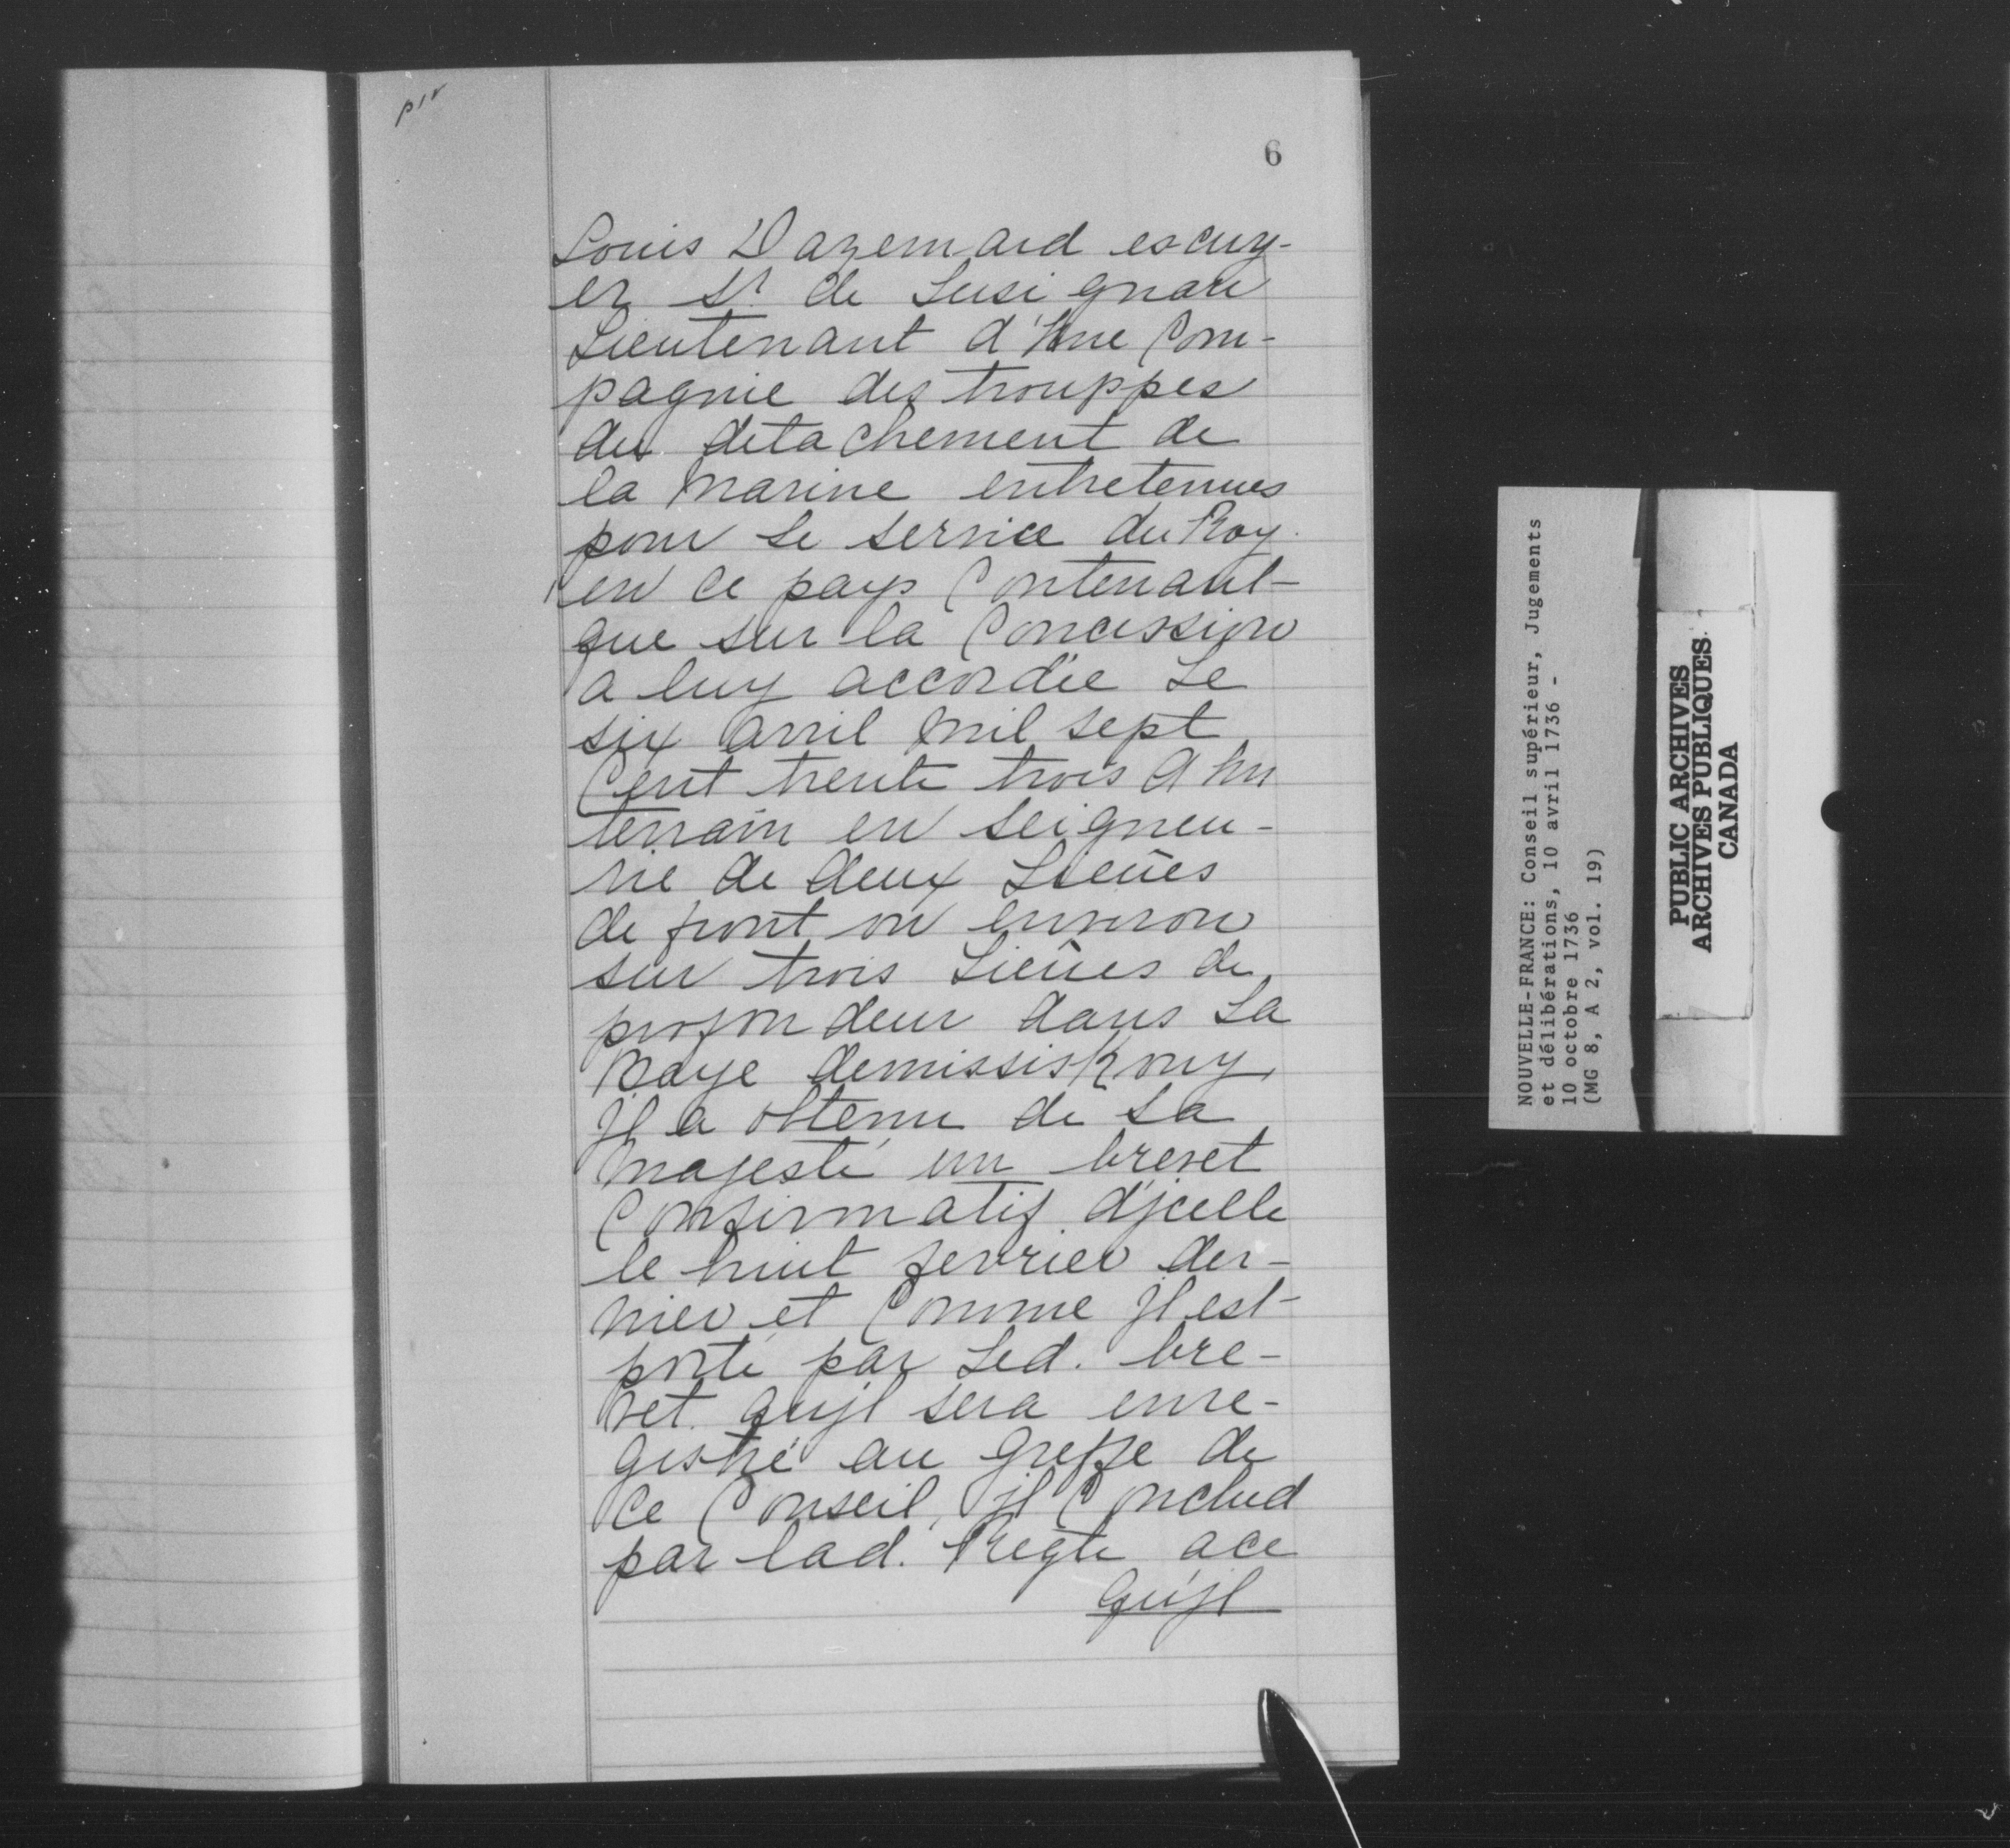 6
Louis Dazemard escuy-
er Sr. de Lusignan
Lieutenant d'Une Com-
pagnie des trouppes
du detachement de
la marine entretenues
pour Le service du Roy
en ce pays Contenant
que sur la Concession
a luy accordée Le
six avril mil sept
Cent trente trois d'Un
terrain en seigneu-
rie de deux Lieües
de front ou environ
sur trois Lieües de
profondeur dans La
Baye demissiskouy
jl a obtenu de sa
majesté un brevet
Confirmatif d'jcelle
le huit fevrier der-
nier et Comme jl est
porté par Led. bre-
vet qujl sera enre-
gistré au Greffe de
Ce Conseil, jl Conclud
par lad. Reqte ace
Qu'jl
NOUVELLE-FRANCE: Conseil supérieur, Jugements
et délibérations, 10 avril 1736 -
10 octobre 1736
(MG 8, A 2, vol. 19)
PUBLIC ARCHIVES
ARCHIVES PUBLIQUES
CANADA